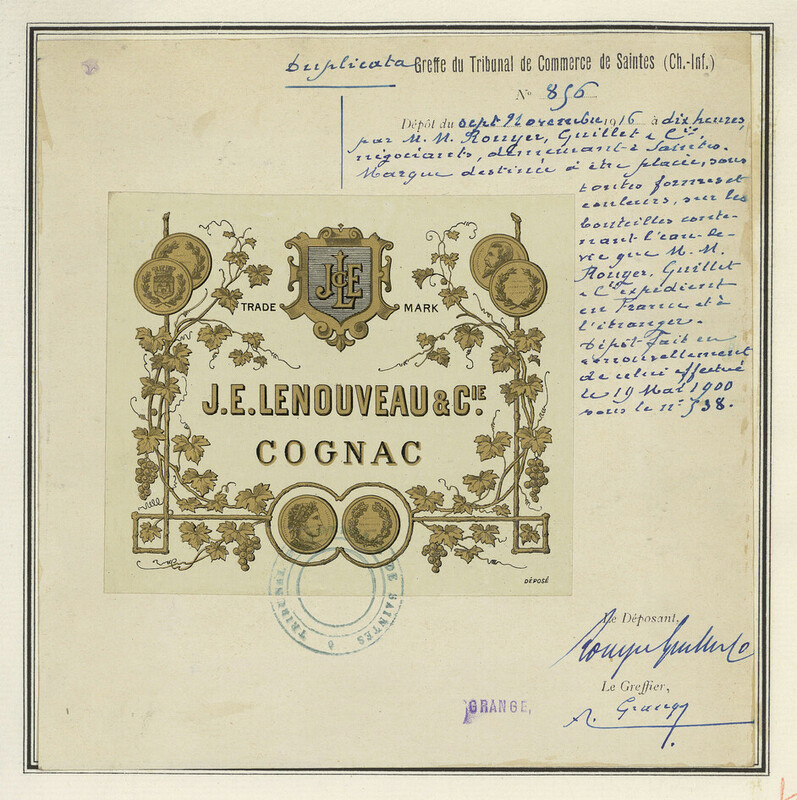 Duplicata Greffe du Tribunal de Commerce de Saintes (Ch.-Inf.)
N° 856
Dépôt du sept Novembre 1916 à dix heures,
par M. M. Rouyer, Guillet & Cie,
négociants, demeurant à Saintes.
Marque destinée à être placée, sous
toutes formes et
couleurs, sur les
bouteilles conte-
nant l'eau-de-
vie que M. M.
Rouyer, Guillet
& Cie expédient
en France et à
l'étranger.
Dépôt fait en
renouvellement
de celui effectué
le 19 Mai 1900
sous le n° 538.
JLCE
TRADE MARK
J.E. LENOUVEAU & CIE.
COGNAC
DÉPOSÉ
TRIBUNAL DE SAINTES
Le Déposant,
Rouyer Guillet & Co
Le Greffier,
GRANGE,
A. Grange